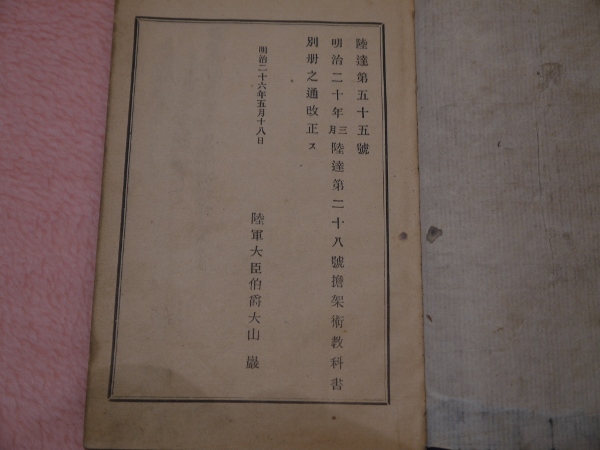 陸達第五十五號
明治二十年三月陸達第二十八號擔架術教科書
別冊之通改正ス
明治二十六年五月十八日
陸軍大臣伯爵大山巖